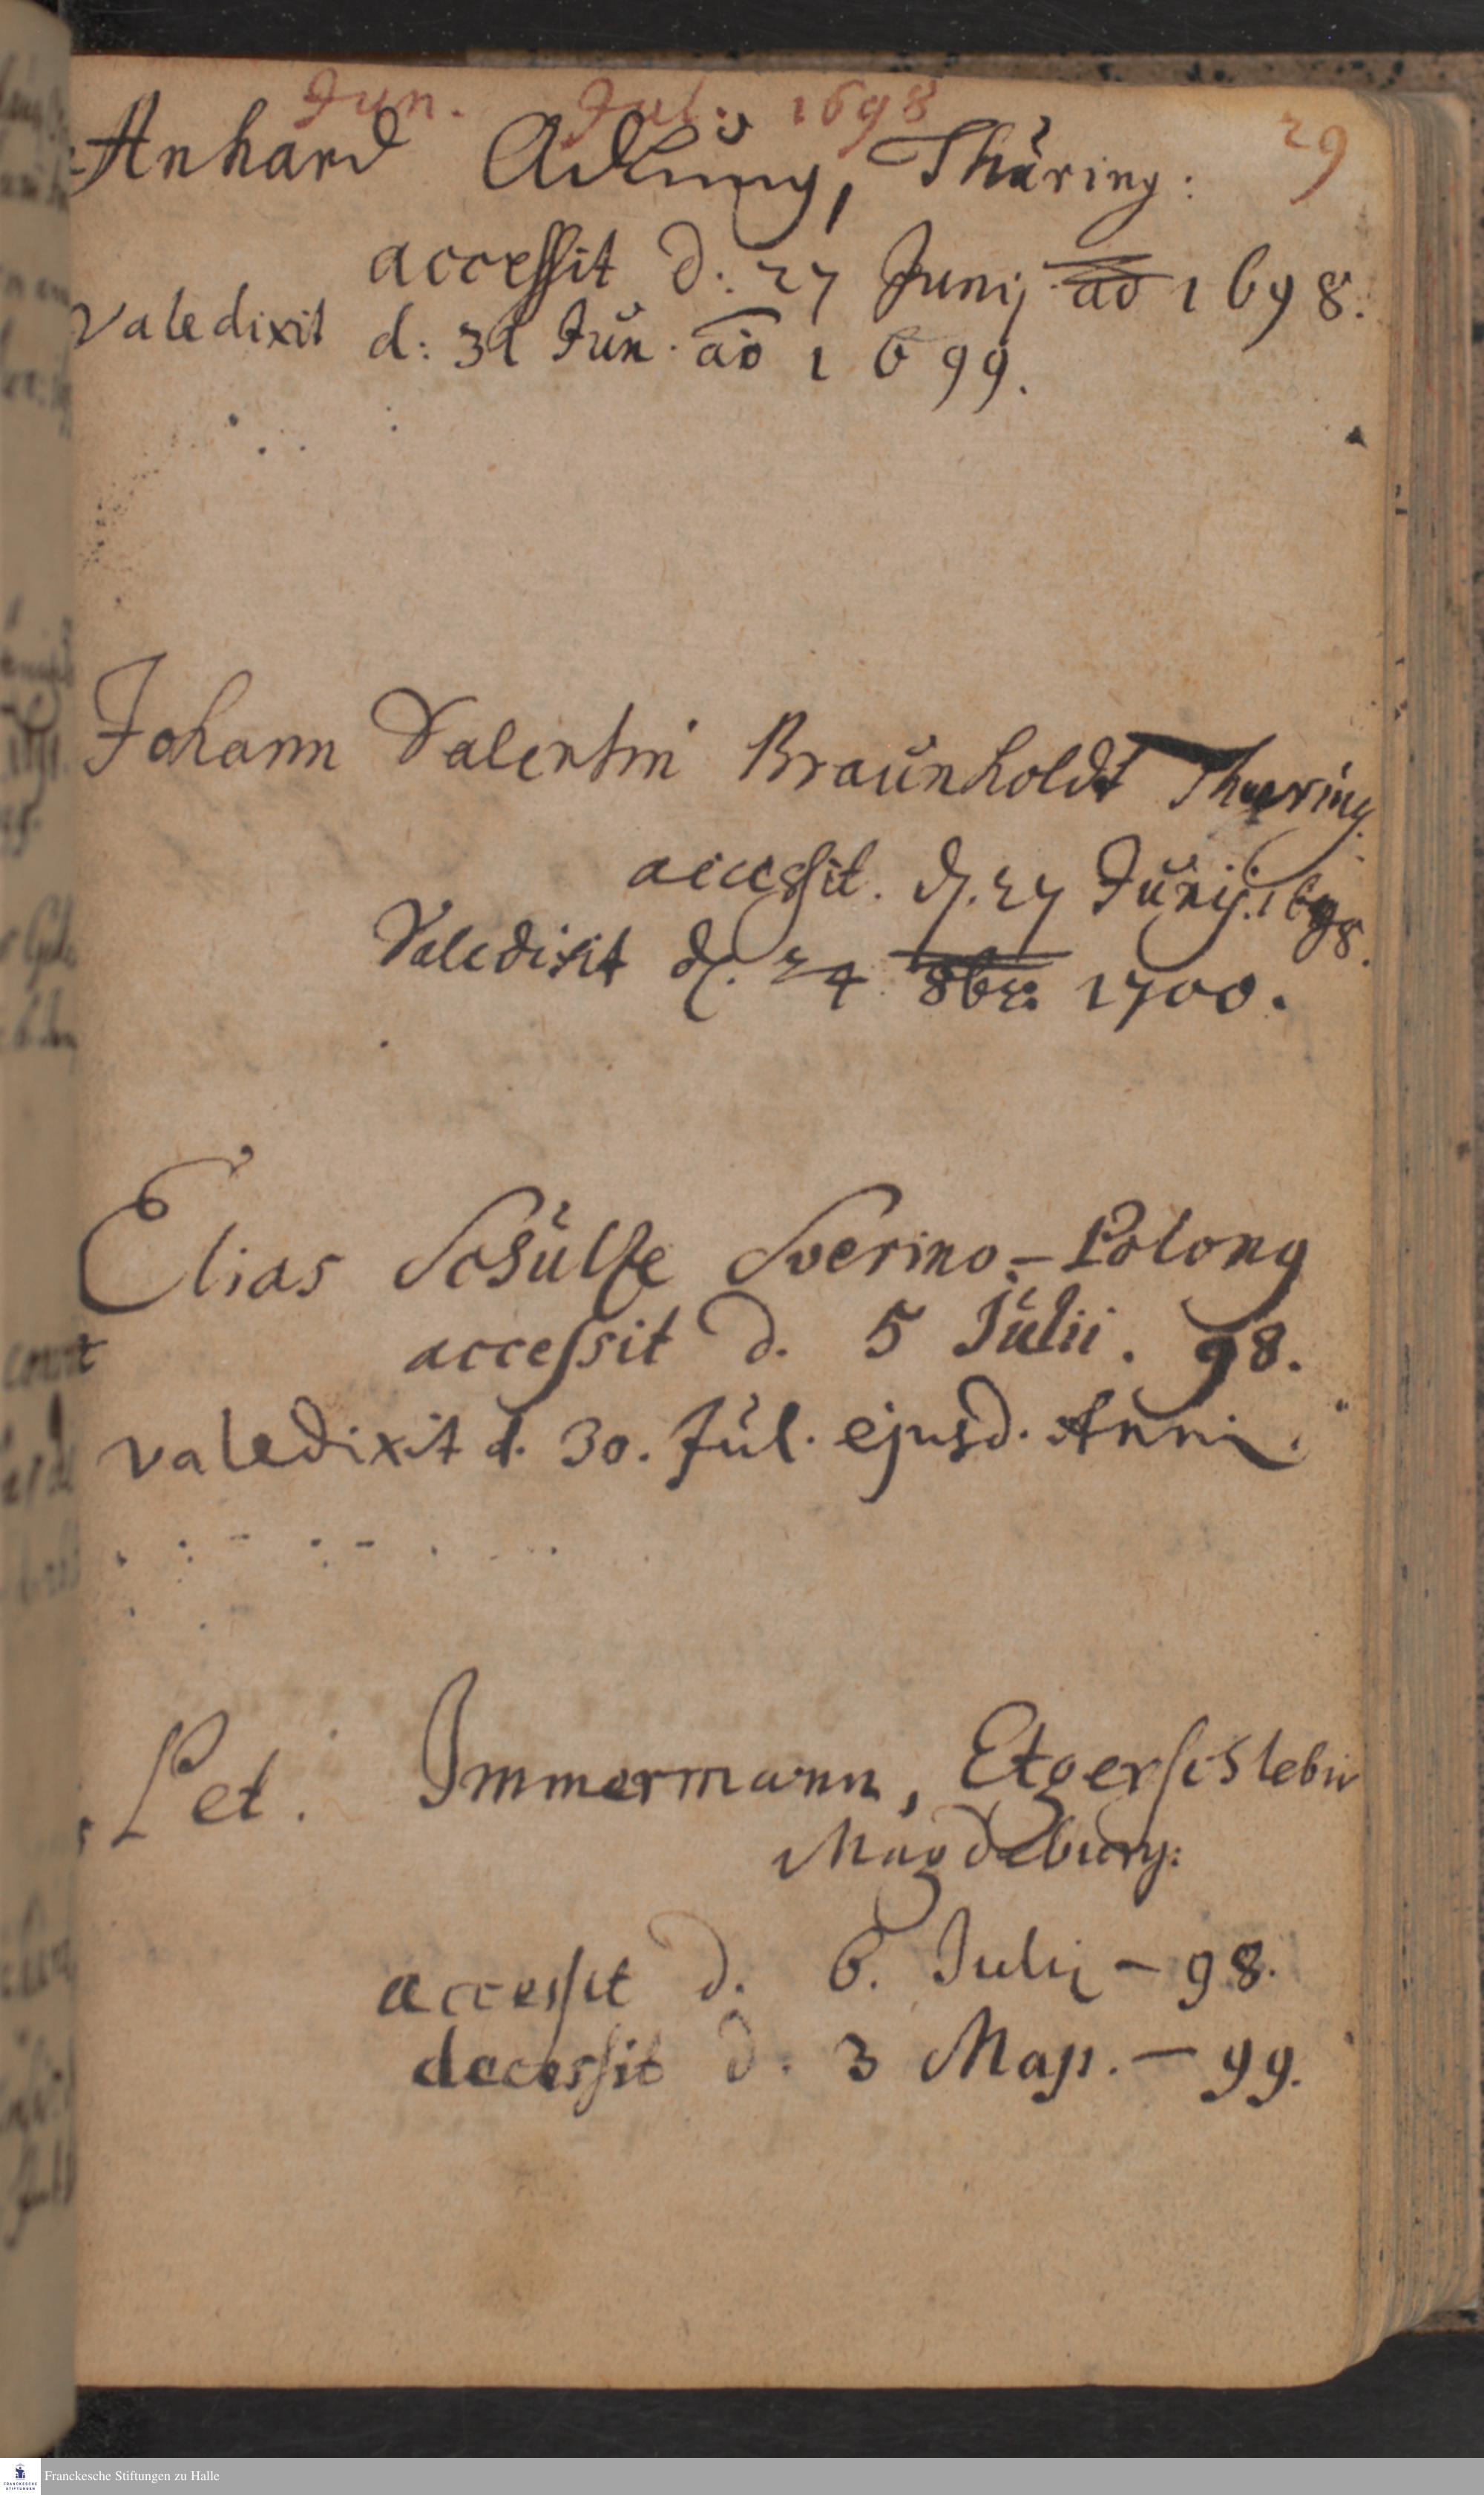 Jun. Jul: 1698
29
Anhard Adlung, Thüring:
accessit d: 27 Junij ao 1698.
valedixit d: 31 Jun. ao 1699.
Johann Valentin Braunholdt Thuring.
accessit. d. 27 Junij. 1698.
Valedixit d. 24 8br: 1700.
Elias Schultze Sverino-Polong
accessit d. 5 Julii. 98.
valedixit d. 30. Jul. ejusd. Anni.
Pet. Immermann, Etgersislebiensis
Magdeburg:
accessit d. 6. Julij - 98.
decessit d. 3 Maji. - 99.
Franckesche Stiftungen zu Halle